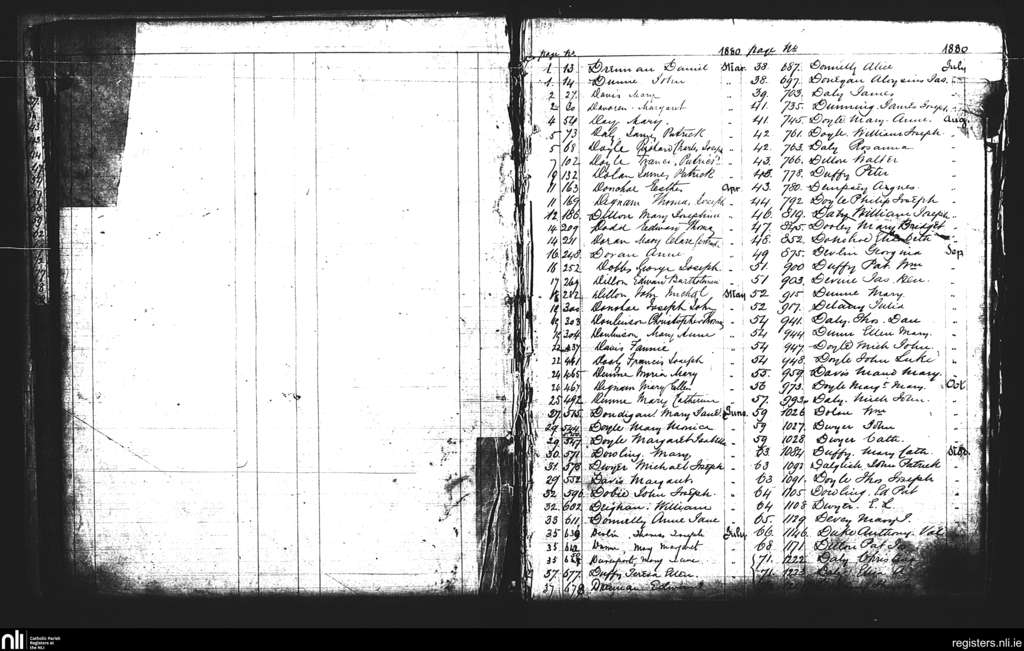 page No 1880
1 13 Drennan Daniel Mar.
1 14 Dunne John "
2 27. Davis Mary "
2 30 Margaret "
4 54 Day Mary. "
5 73 Daly James Patrick "
5 68 Doyle Richard Charles Joseph
7 102 Doyle Francis Patrick "
9 132 Dolan James Patrick "
11 163 Donohoe Esther Apr
11 169 Dignam Thomas Joseph "
12 186 Dillon Mary Josephine "
14 209 Dodd Edward Thomas
14 211 Doran Mary "
16 248 Doran Anne "
16 252 Dobbs George Joseph "
17 269 Dillon Edward Bartholomew
18 282 Dillon John Michael May
18 300 Donohoe Joseph John "
303 Donlinson Christopher Thomas
304 Donlinson Mary Anne "
22 437 Davis Fannie "
22 441 Francis Joseph "
24 465 Dunne Maria Mary "
24 467 Dignam Mary Ellen "
25 492 Dunne Mary Catherine "
27 515 Mary Jane June
29 544 Doyle Mary Monica "
29 547 Doyle Margaret Isabella "
30 571 Dowling Mary "
31 578 Dwyer Michael Joseph "
29 552 Davis Margaret "
32 596 Dobie John Joseph "
32 602 Deighan William "
33 611 Donnelly Anne Jane "
35 639 Devlin Thomas Joseph July
35 Dunne Mary Margaret "
35 Davenport Mary Jane "
37 677 Duffy Teresa Ellen "
37 678 Drennan Edward
page No 1880
38 687. Donnelly Alice July
38. 697. Donegan Aloysius Jas. "
39 703. Daly James "
41. 735. Dunning James Joseph "
41. 745. Doyle Mary Anne. Aug.
42 761. Doyle William Joseph "
42. 763. Daly Rosanna "
43. 766. Dillon Walter "
43. 778. Duffy Peter "
43. 780. Dempsey Agnes "
44. 792 Doyle Philip Joseph "
46. 819. Daly William Joseph "
47. 845. Dooley Mary Bridget "
48. 852. Donohoe Elizabeth "
49 875. Devlin Georgina Sep
51. 900 Duffy Pat. Wm "
51 903. Devine Jas. Hen. "
52 915 Dunne Mary "
52. 917. Delaney Julia "
54 941. Daly Thos. Dan "
54 944 Dunne Ellen Mary. "
54 947. Doyle Mich John "
54 948. Doyle John Luke "
55. 959. Davis Maud Mary. "
56 973. Doyle Margt Mary. Oct.
57. 993. Daly Mich John. "
59 1026 Dolan Wm "
59 1027. Dwyer John "
59 1028 Dwyer Cath. "
63 1084 Duffy Mary Cath.
63 109 Dalglish John Patrick "
63 1091. Doyle Thos Joseph "
64 1105 Dowling Ed Pat "
64 1108 Dwyer. E. L. "
65. 1129 Devey Mary J. "
66. 1146 Duke Anthony Val "
68. 1171 Dillon Pat
71. 1222 Daly
71. 1223 Daly
nli
Catholic Parish
Registers at
the NLI
registers.nli.ie